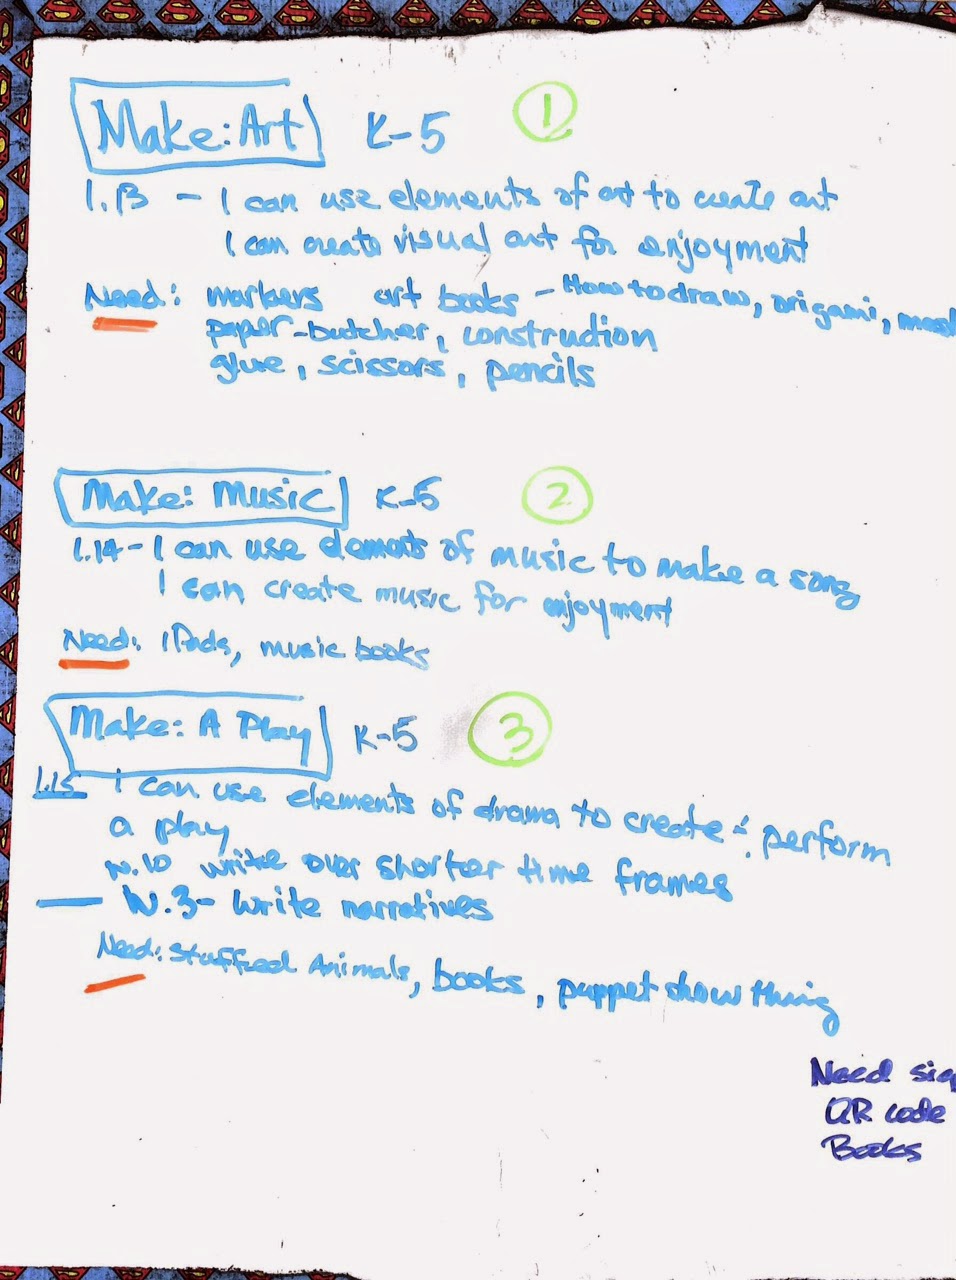 Make: Art K-5 1
1.13 - I can use elements of art to create art
I can create visual art for enjoyment
Need: markers art books - How to draw, origami,
paper-butcher, construction
glue, scissors, pencils
Make: Music K-5 2
1.14 - I can use elements of music to make a song
I can create music for enjoyment
Need: iPads, music books
Make: A Play K-5 3
1.15 I can use elements of drama to create & perform
a play
W.10 write over shorter time frames
W.3- Write narratives
Need: Stuffed Animals, books, puppet show thing
Need
QR code
Books